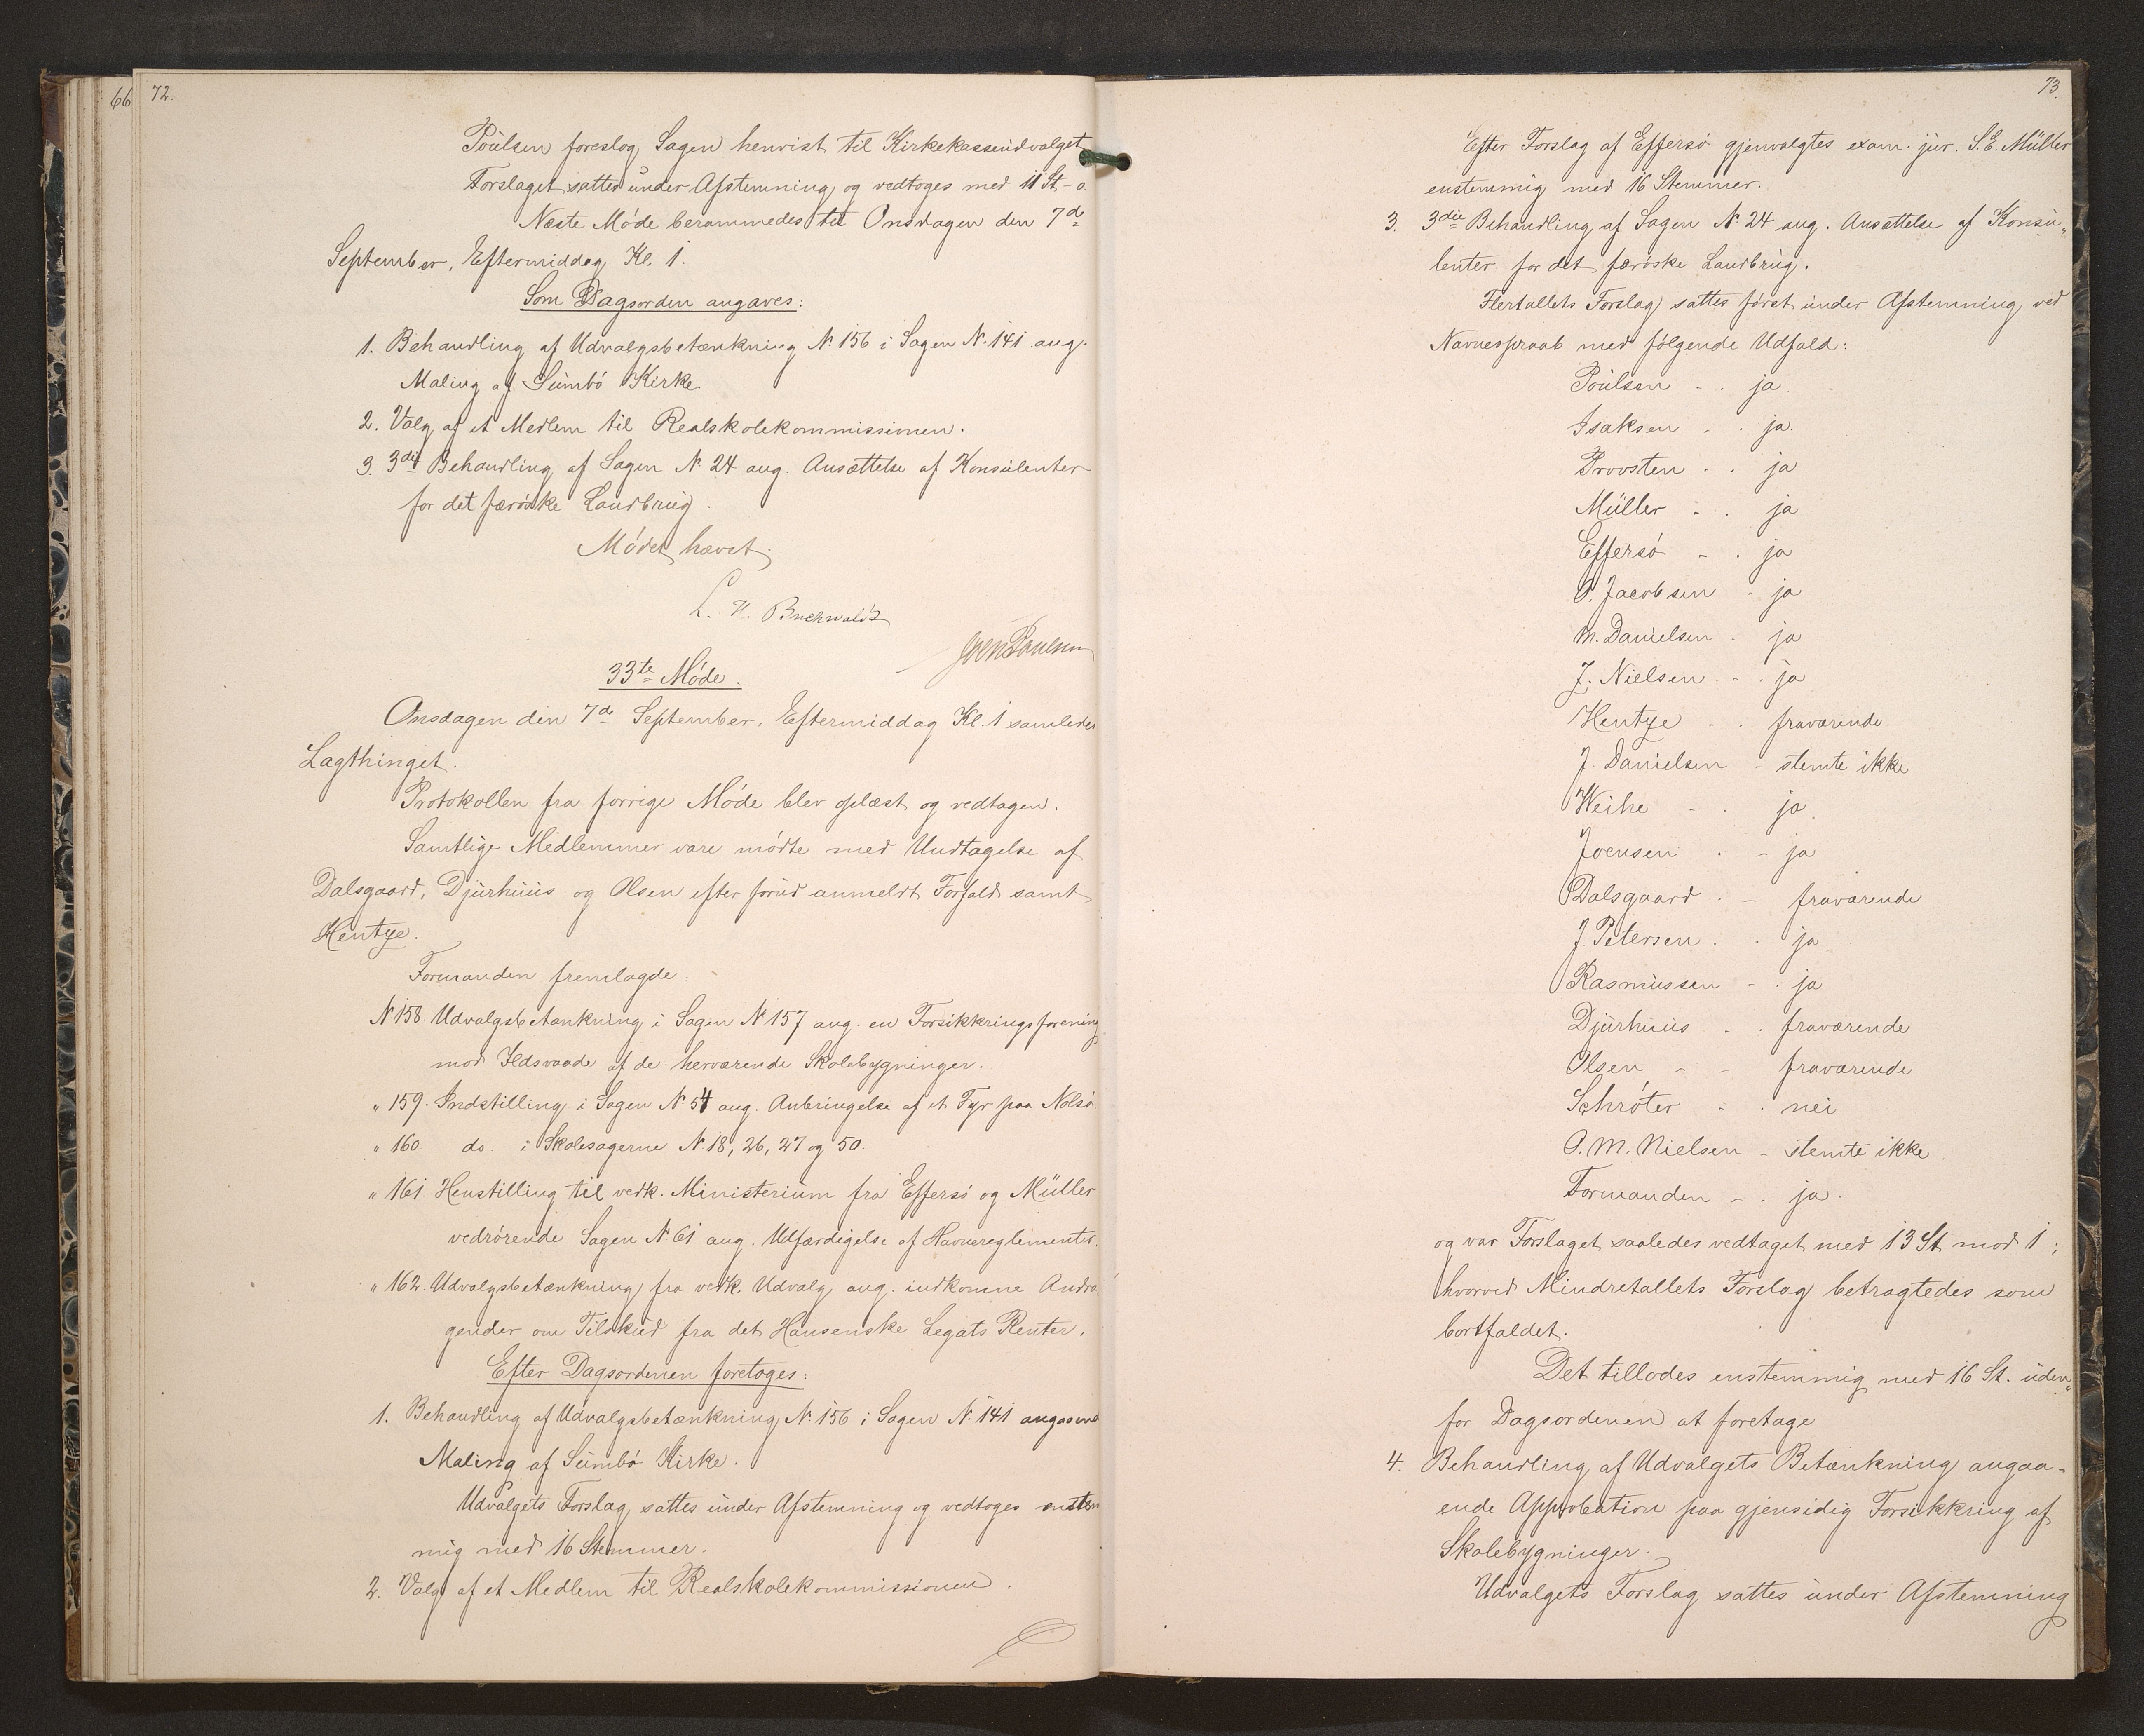 66
72.
Poulsen foreslog Sagen henvist til Kirkekasseudvalget
Forslaget sattes under Afstemning og vedtoges med 11 St - o.
Næste Møde berammedes til Onsdagen den 7de
September, Eftermiddag Kl. 1.
Som Dagsorden angaves:
1. Behandling af Udvalgsbetænkning N. 156 i Sagen N. 141 ang.
Maling af Sumbø Kirke
2. Valg af et Medlem til Realskolekommissionen.
3. 3die Behandling af Sagen N. 24 ang. Ansættelse af Konsulenter
for det færøiske Landbrug.
Mødet hævet.
L. V. Buchwaldt
Joen Poulsen
33te Møde.
Onsdagen den 7de September, Eftermiddag Kl. 1 samledes
Lagthinget.
Protokollen fra forrige Møde blev oplæst og vedtagen.
Samtlige Medlemmer vare mødte med Undtagelse af
Dalsgaard, Djurhuus og Olsen efter forud anmeldt Forfald samt
Hentze.
Formanden fremlagde:
N. 158. Udvalgsbetænkning i Sagen N. 157 ang. en Forsikkringsforening
mod Ildsvaade af de herværende Skolebygninger.
" 159. Indstilling i Sagen N. 54 ang. Anbringelse af et Fyr paa Nolsø
" 160 do. i Skolesagerne N. 18, 26, 27 og 50.
" 161. Henstilling til vedk. Ministerium fra Effersø og Müller
vedrørende Sagen N. 61 ang. Udfærdigelse af Havnereglementer.
" 162. Udvalgsbetænkning fra vedk. Udvalg ang. indkomne Andra
gender om Tilskud fra det Hansenske Legats Renter.
Efter Dagsordenen foretoges:
1. Behandling af Udvalgsbetænkning N. 156 i Sagen N. 141 angaaende
Maling af Sumbø Kirke.
Udvalgets Forslag sattes under Afstemning og vedtoges enstem
mig med 16 Stemmer.
2. Valg af et Medlem til Realskolekommissionen.
73.
Efter Forslag af Effersø gjenvalgtes exam. jur. S. E. Müller
enstemmig med 16 Stemmer.
3. 3die Behandling af Sagen N. 24 ang. Ansættelse af Konsu„
lenter for det færøske Landbrug.
Flertallets Forslag sattes først under Afstemning ved
Navnespraab med følgende Udfald:
Poulsen - . ja.
Isaksen . . ja.
Provsten . . ja
Müller - . ja
Effersø - . ja
O. Jacobsen - ja
M. Danielsen . ja
J. Nielsen . - . ja
Hentze . . fraværende
J. Danielsen - stemte ikke
Weihe - . ja.
Joensen . - ja
Dalsgaard . - fraværende
J. Petersen . . ja
Rasmussen - . ja
Djurhuus . . fraværende
Olsen - - fraværende
Schrøter - . nei
O. M. Nielsen - stemte ikke
Formanden - . ja.
og var Forslaget saaledes vedtaget med 13 St. mod 1;
hvorved Mindretallets Forslag betragtedes som
bortfaldet.
Det tillodes enstemmig med 16 St. uden„
for Dagsordenen at foretage
4. Behandling af Udvalgets Betænkning angaa-
ende Approbation paa gjensidig Forsikkring af
Skolebygninger.
Udvalgets Forslag sattes under Afstemning